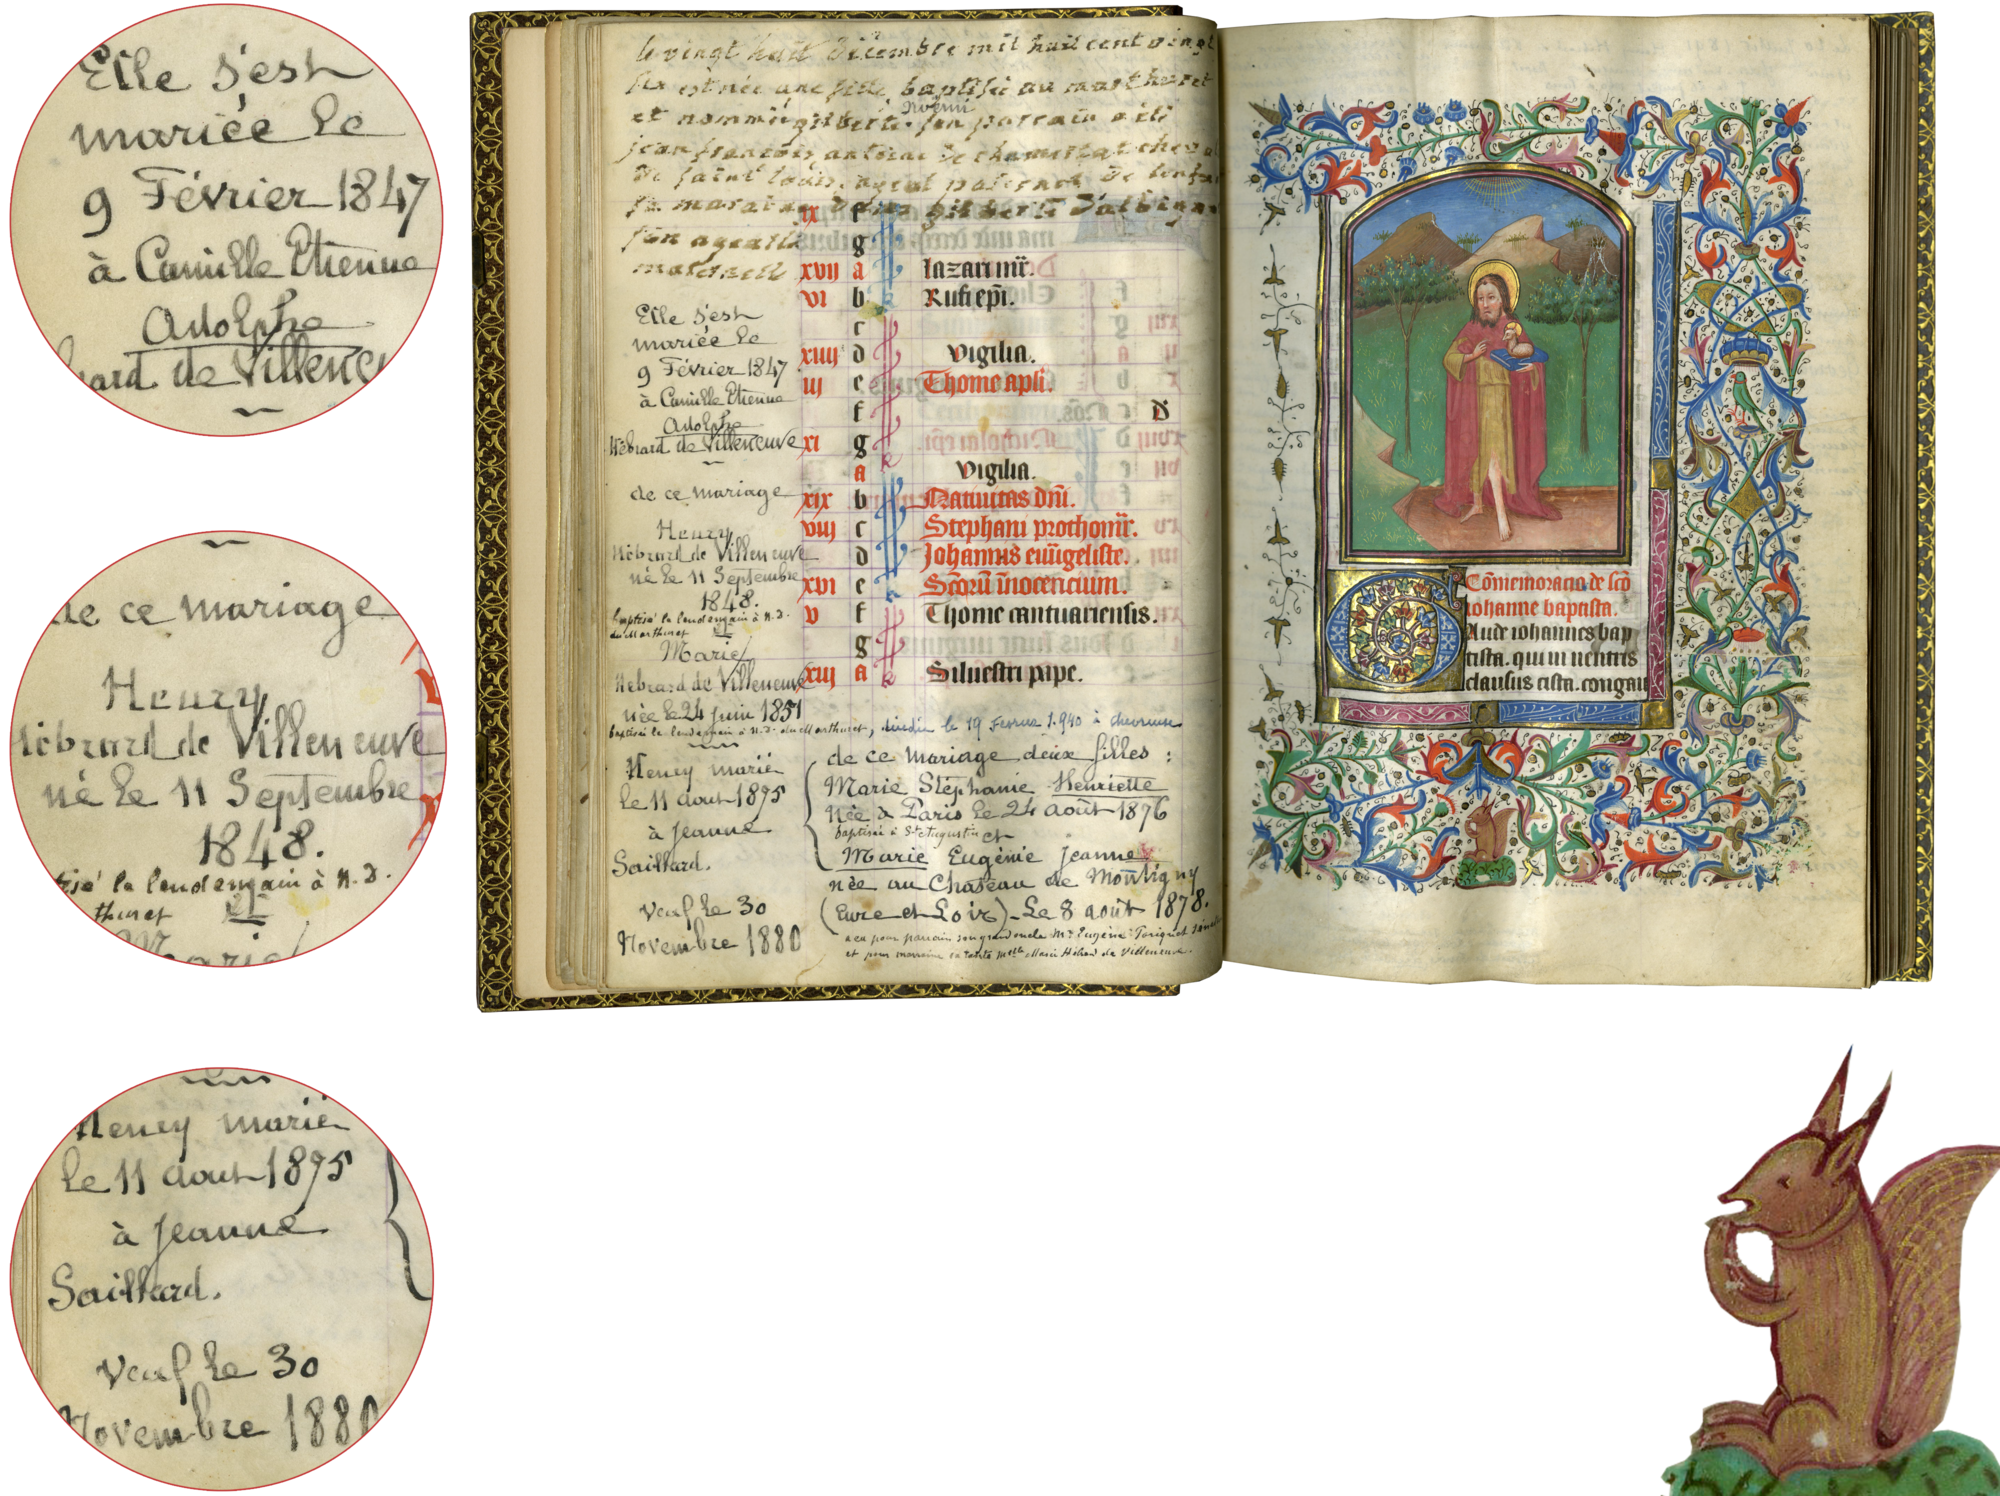 Elle s'est
mariée le
9 Février 1847
à Camille Etienne
Adolphe
de Villeneuv
de ce mariage
Henry
Hébrard de Villeneuve
né le 11 Septembre
1848.
le lendemain à N. D.
thuret et
Marie
Henry marié
le 11 aout 1875
à Jeanne
Saillard.
Veuf le 30
Novembre 1880
le vingt huit décembre mil huit cent vingt
six est née une fille baptisée au marthuret
et nommée gilberte. son parrain a été
jean françois antoine de chamerlat cheval
de saint louis, ayeul paternel de l'enfant
sa maraine gilberte d'albigny
son ayeulle
maternelle
ix f
g
xvij a lazari mr̃.
vi b Rufi epi̅.
c
xiiij d vigilia.
iij e Thome apl̅i.
f
xi g
a vigilia.
xix b Natiuitas dn̅i.
viij c Stephani prothom̅r.
d Johannis eu̅ãgeliste.
xvi e Sc̅oru̅ i̅nocencium.
v f Thome cantuariensis.
g
xiij a Siluestri pape.
Elle s'est
mariée le
9 Février 1847
à Camille Etienne
Adolphe
Hébrard de Villeneuve
de ce mariage
Henry
Hébrard de Villeneuve
né le 11 Septembre
1848.
baptisé le lendemain à N. D.
du Marthuret et
Marie
Hébrard de Villeneuve
née le 24 juin 1851
baptisée le lendemain à N. D. du Marthuret, décédée le 19 Février 1.940 à chevreuse
Henry marié
le 11 aout 1875
à Jeanne
Saillard.
Veuf le 30
Novembre 1880
de ce mariage deux filles :
Marie Stéphanie Henriette
Née à Paris le 24 août 1876
baptisée à St Augustin et
Marie Eugénie Jeanne
née au Château de Montigny
(Eure et Loir) - le 8 août 1878.
a eu pour parrain son grand oncle Mr Eugène
et pour marraine sa tante Melle Marie Hébrard de Villeneuve.
Co̅memoracio de sc̅o
iohanne baptista.
Aude iohannes bap
tista. qui in uentris
clausus cista. congau